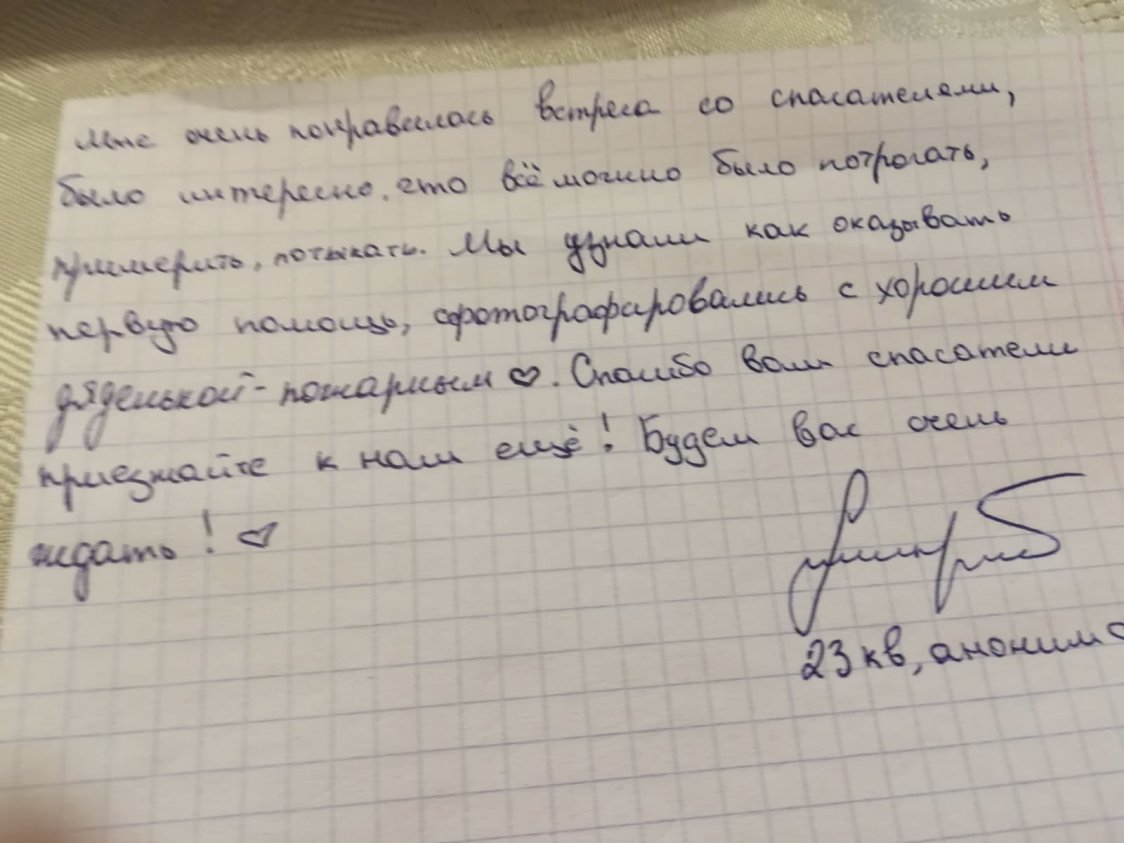 Мне очень понравилась встреча со спасателями,
было интересно, что всё можно было потрогать,
примерить, потыкать. Мы узнали как оказывать
первую помощь, сфотографировались с хорошим
дяденькой-пожарным ♡. Спасибо вам спасатели
приезжайте к нам ещё! Будем вас очень
ждать! ♡
23 кв, аноним